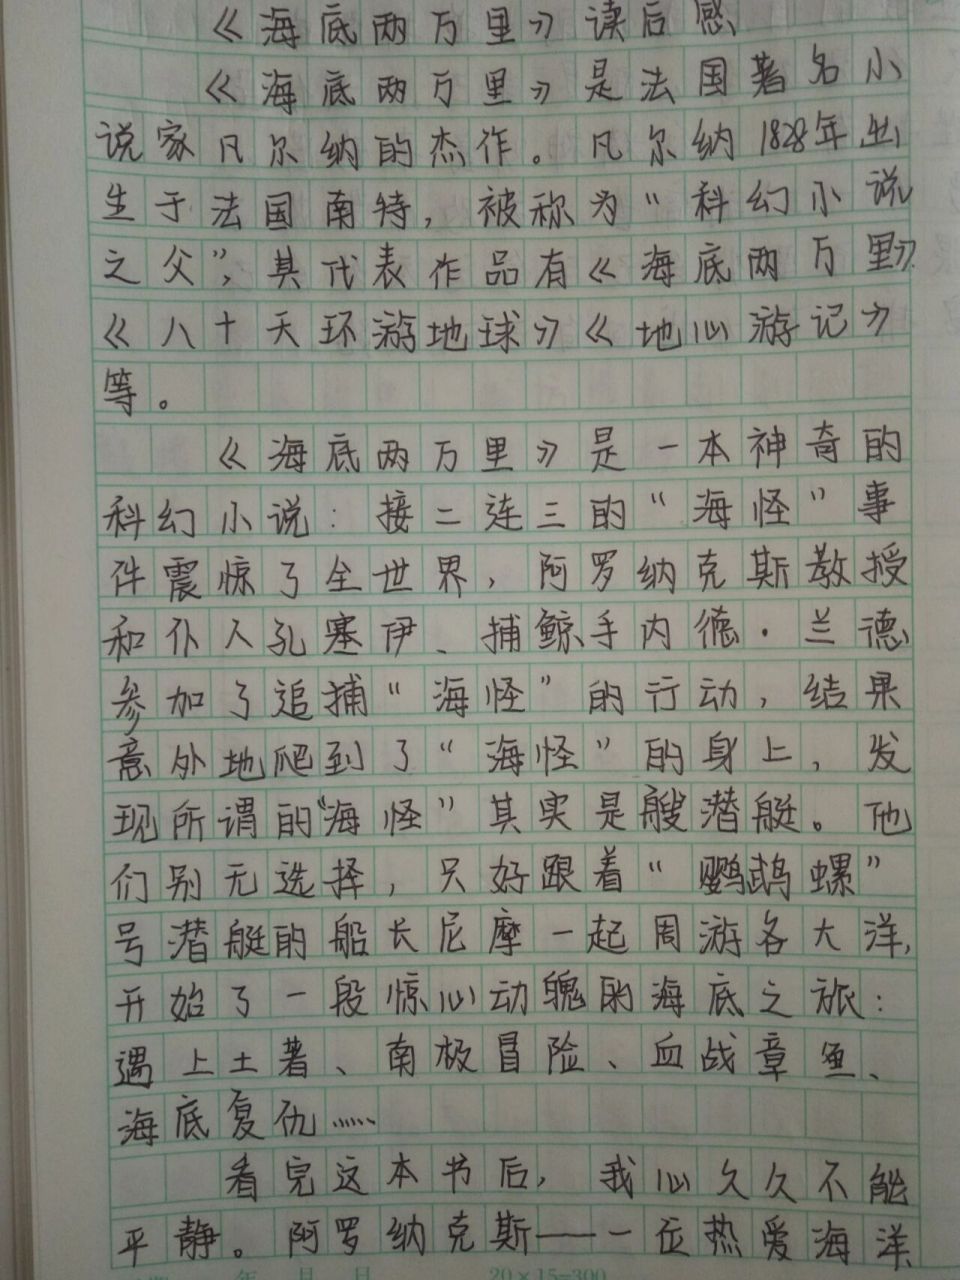 《海底两万里》读后感
《海底两万里》是法国著名小
说家凡尔纳的杰作。凡尔纳1828年出
生于法国南特，被称为“科幻小说
之父”，其代表作品有《海底两万里》
《八十天环游地球》《地心游记》
等。
《海底两万里》是一本神奇的
科幻小说：接二连三的“海怪”事
件震惊了全世界，阿罗纳克斯教授
和仆人孔塞伊、捕鲸手内德·兰德
参加了追捕“海怪”的行动，结果
意外地爬到了“海怪”的身上，发
现所谓的“海怪”其实是艘潜艇。他
们别无选择，只好跟着“鹦鹉螺”
号潜艇的船长尼摩一起周游各大洋，
开始了一段惊心动魄的海底之旅：
遇上土著、南极冒险、血战章鱼、
海底复仇……
看完这本书后，我心久久不能
平静。阿罗纳克斯——一位热爱海洋
年 月 日 20×15=300